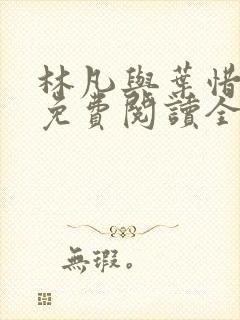 林凡與葉惜
免費閱讀全
無瑕。